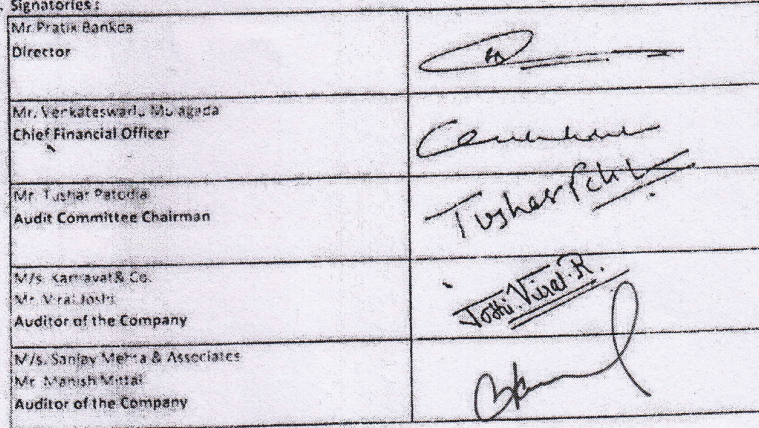 . Signatories :
Mr. Pratik Bankda
Director
Mr. Venkateswarlu
Chief Financial Officer
Mr. Tushar Patodia
Audit Committee Chairman
Tushar
M/s. Karnavat & Co.
Mr. Viral Joshi
Auditor of the Company
Joshi Viral. R.
M/s. Sanjay Mehta & Associates
Mr. Manish Mittal
Auditor of the Company